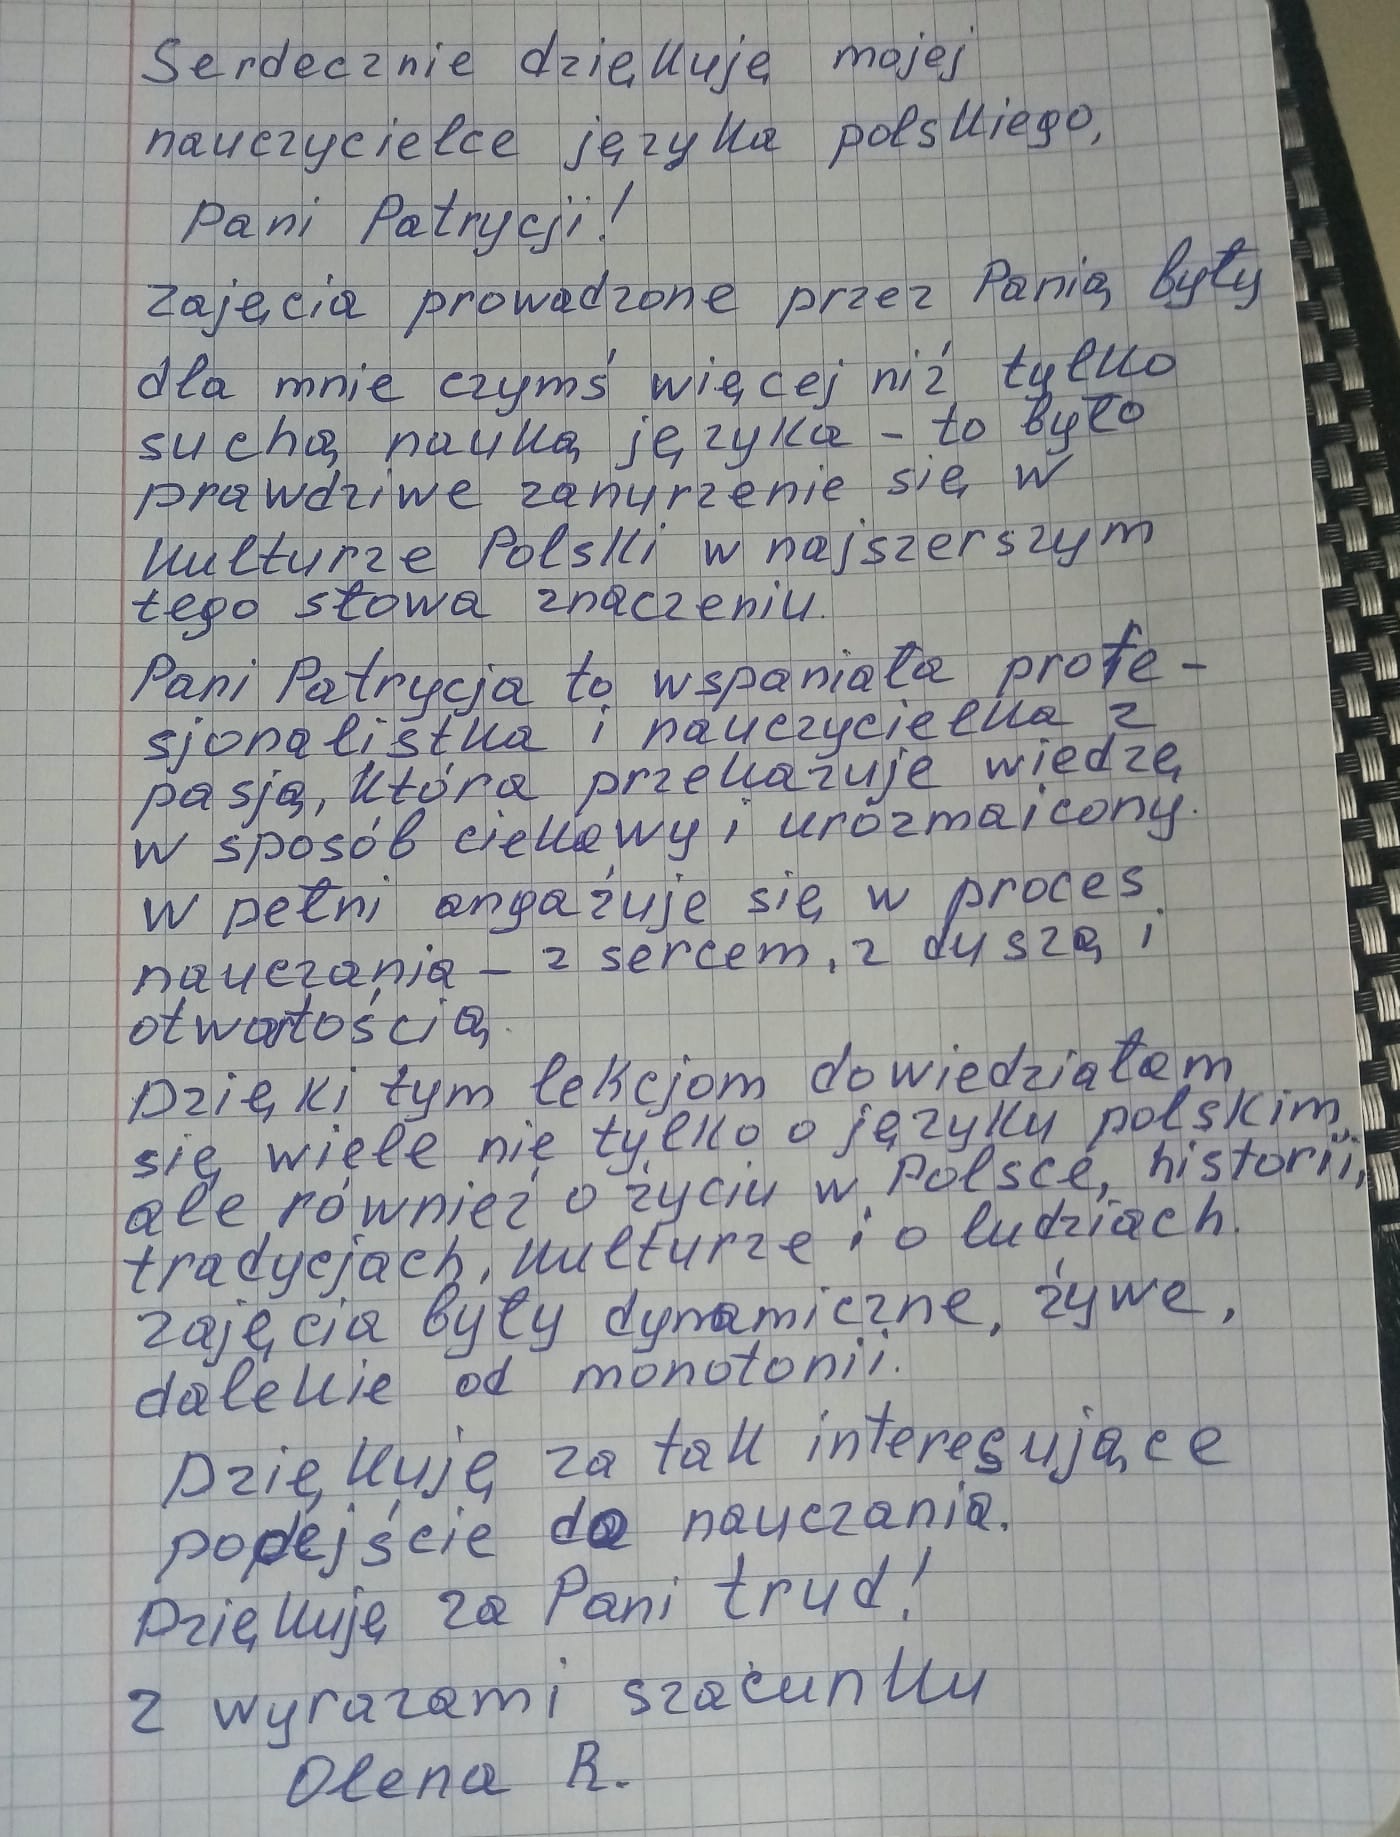 Serdecznie dziękuję mojej
nauczycielce języka polskiego,
Pani Patrycji!
Zajęcia prowadzone przez Panią były
dla mnie czymś więcej niż tylko
suchą nauką języka - to było
prawdziwe zanurzenie się w
kulturze Polski w najszerszym
tego słowa znaczeniu.
Pani Patrycja to wspaniała profe-
sjonalistka i nauczycielka z
pasją, która przekazuje wiedzę
w sposób ciekawy i urozmaicony.
W pełni angażuje się w proces
nauczania - z sercem, z duszą i
otwartością.
Dzięki tym lekcjom dowiedziałam
się wiele nie tylko o języku polskim,
ale również o życiu w Polsce, historii,
tradycjach, kulturze i o ludziach.
Zajęcia były dynamiczne, żywe,
dalekie od monotonii.
Dziękuję za tak interesujące
podejście do nauczania.
Dziękuję za Pani trud!
Z wyrazami szacunku
Olena R.